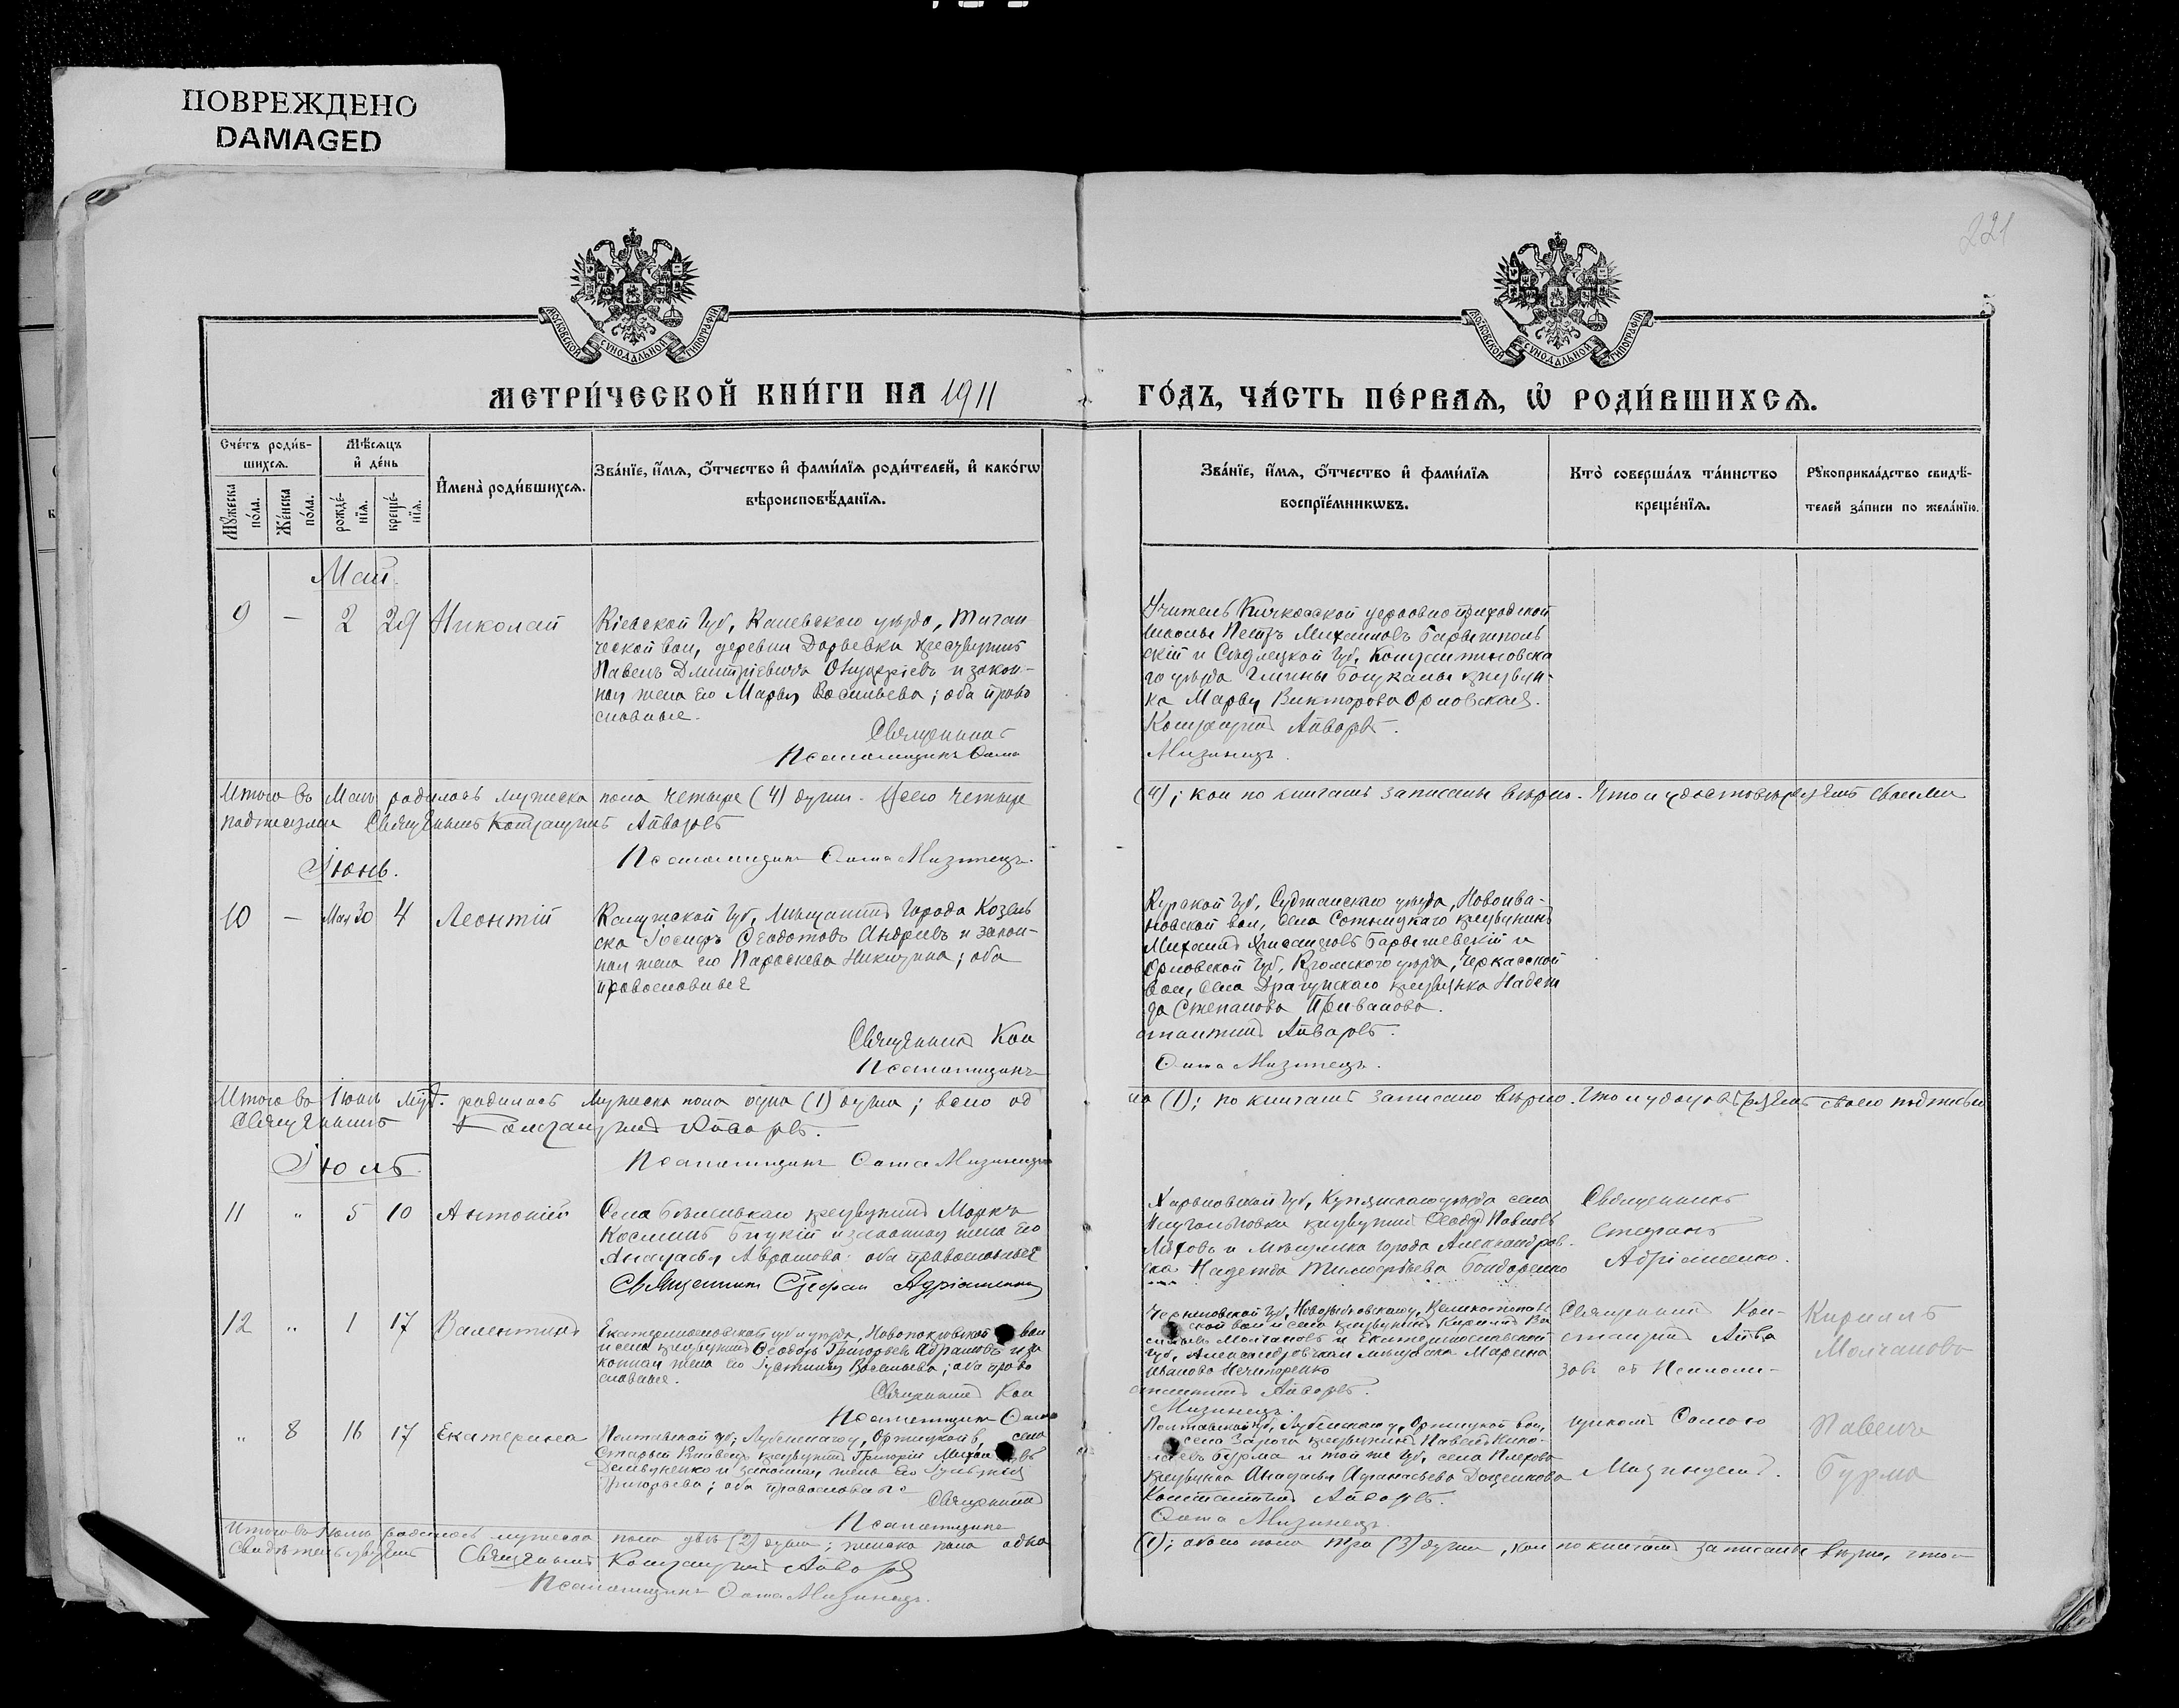 ПОВРЕЖДЕНО
DAMAGED
221
МОСКОВСКОЙ СѴНОДАЛЬНОЙ ТИПОГРАФІИ
МОСКОВСКОЙ СѴНОДАЛЬНОЙ ТИПОГРАФІИ
МЕТРИ́ЧЕСКОЙ КНИ́ГИ НА 1911 ГО́ДЪ, ЧА́СТЬ ПЕ́РВАЯ, Ѽ РОДИ́ВШИХСЯ.
Сче́тъ роди́в-
шихся.
Мѣ́сяцъ
и҆ де́нь
Мꙋ́жеска по́ла.
Же́нска по́ла.
рожде́-
нїя.
креще́-
нїя.
И҆мена̀ роди́вшихся.
Зва́нїе, и҆́мя, ѻ҆́тчество и҆ фами́лїя роди́телей, и҆ како́гѡ
вѣроисповѣ́данїя.
Зва́нїе, и҆́мя, ѻ҆́тчество и҆ фами́лїя
воспрїе́мникѡвъ.
Кто̀ соверша́лъ та́инство
креще́нїя.
Рꙋкоприкла́дство свидѣ́-
телей за́писи по жела́нїю.
Май.
9 — 2 29 Николай
Кіевской Губ, Каневскаго уѣзда,
ческой вол, деревни крестьянинъ
Павелъ Дмитріевичъ и закон-
ная жена его Марья Васильева; оба право
славные.
Священникъ
Псаломщикъ Ѳома
Учитель Кичкасской церковно приходской
школы Петръ Михаиловъ Барышполь
скій и Сѣдлецкой Губ, Константиновска
го уѣзда Гмины крестьян-
ка Марья Викторова Орловская.
Константинъ Айваровъ.
Мизинецъ.
Итого въ Маѣ родилось мужеска пола четыре (4) души. Всего четыре
(4); кои по книгамъ записаны вѣрно. Что и удостовѣряемъ своими
подписями Священникъ Константинъ Айваровъ
Псаломщикъ Ѳома Мизинецъ.
Іюнь.
10 — Мая 30 4 Леонтій
Калужской Губ, мѣщанинъ города Козель
ска Іосифъ Ѳеодотовъ Андреевъ и закон-
ная жена его Параскева Никитина; оба
православные
Священникъ Кон
Псаломщикъ
Курской Губ, Суджанскаго уѣзда, Новоива-
новской вол, села Сотницкаго крестьянинъ
Михаилъ Барышевскій и
Орловской Губ, Кромскаго уѣзда, Черкасской
вол, села Драгунскаго крестьянка Надеж
да Степанова Приванова.
стантинъ Айваровъ.
Ѳома Мизинецъ.
Итого въ Іюнѣ родилось мужеска пола одна (1) душа; всего од
на (1); по книгамъ записано вѣрно. Что и удостовѣряемъ своею подписью
Священникъ Константинъ Айваровъ.
Псаломщикъ Ѳома Мизинецъ
Іюль.
11 " 5 10 Антоній
Села Бѣленькаго крестьянинъ Маркъ
Косминъ Бицкій и законная жена его
Анастасья Абрамова: оба православные
Священникъ Стефан Адріашенко
Харьковской Губ, Купянскаго уѣзда села
крестьянинъ Ѳеодоръ Павловъ
Ляховъ и мѣщанка города Александров-
ска Надежда Тимоѳѣева Бондаренко
Священникъ
Стефанъ
Адріашенко.
12 " 1 17 Валентинъ
Екатеринославской губ и уѣзда, Новопокровской вол
и села крестьянинъ Ѳеодоръ Григорьевъ Абрамовъ и за
конная жена его Іустинія Васильева; оба право
славные.
Священникъ Кон
Псаломщикъ Ѳома
Черниговской Губ, Новозыбковскаго у,
ской вол и села крестьянинъ Кириллъ Ва
сильевъ Молчановъ и Екатеринославской
губ, Александровская мѣщанка Марина
Иванова Нечипоренко
стантинъ Айваровъ.
Мизинецъ.
Священникъ Кон-
стантинъ Айва
зовъ съ Псалом-
щикомъ Ѳомою
Мизинцемъ.
Кириллъ
Молчановъ
" 8 16 17 Екатерина
Полтавской губ; Лубенскаго у, Оржицкой в, села
крестьянинъ Григорій Михаиловъ
и законная жена его
Григорьева; оба православные
Священникъ
Псаломщикъ
Полтавской губ, Лубенскаго у, Оржицкой вол,
села Зарога крестьянинъ Павелъ Нико-
лаевъ Бурма и той же губ, села Плехова
крестьянка Анастасья Афанасьева Доценкова
Константинъ Айваровъ.
Ѳома Мизинецъ.
Павелъ
Бурма
Итого въ Іюлѣ родилось мужеска пола двѣ (2) души; женска пола одна
(1); обоего пола три (3) души, кои по книгамъ записаны вѣрно, что и
свидѣтельствуемъ Священникъ Константинъ Айваровъ
Псаломщикъ Ѳома Мизинецъ.